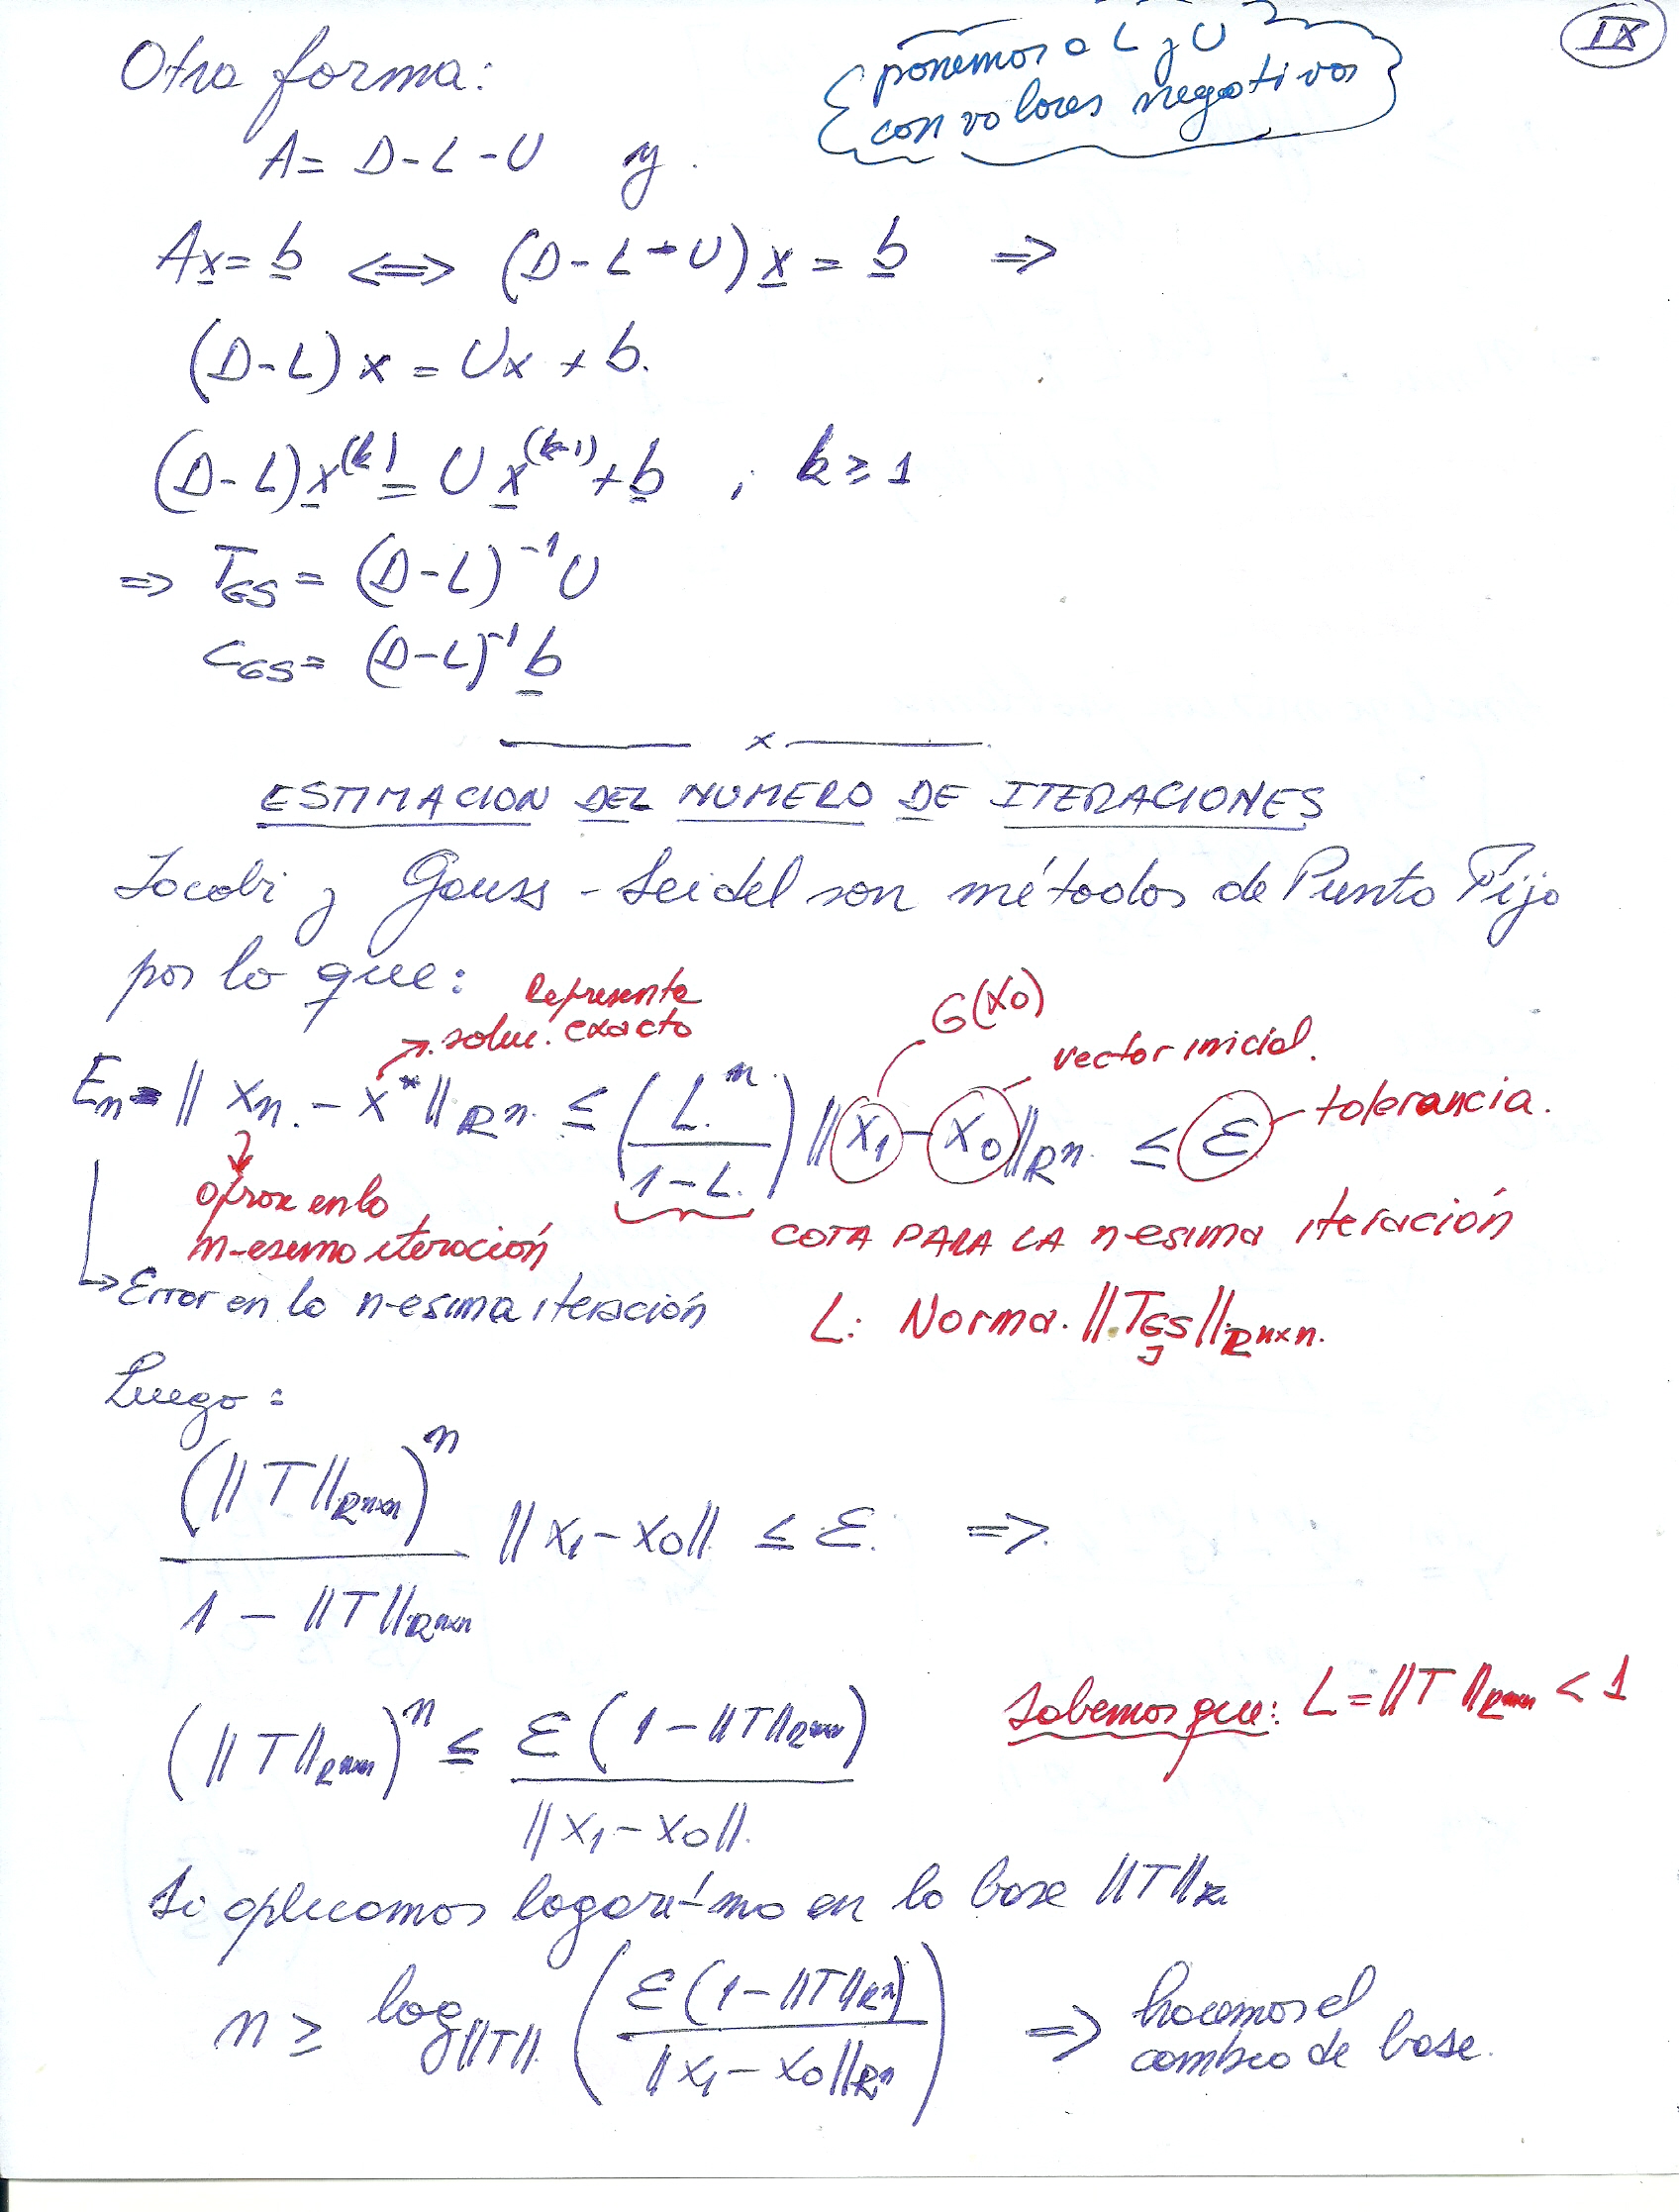 IX
Otra forma:
ponemos a L y U
con valores negativos
A = D - L - U y
Ax = b <=> (D - L - U) x = b =>
(D - L) x = Ux + b.
(D - L) x^(k) = U x^(k-1) + b , k ≥ 1
=> T_GS = (D - L)^-1 U
C_GS = (D - L)^-1 b
x
ESTIMACION DEL NUMERO DE ITERACIONES
Jacobi y Gauss - Seidel son métodos de Punto Fijo
por lo que:
Representa
soluc. exacta
G(x0)
vector inicial.
En = || xn - x* ||_R^n ≤ (L^n / (1 - L)) || x1 - x0 ||_R^n ≤ ε
tolerancia.
aprox en la
n-esima iteración
COTA PARA LA n-esima iteración
Error en la n-esima iteración
L: Norma. || T_GS ||_R^nxn.
J
Luego:
(|| T ||_R^nxn)^n / (1 - || T ||_R^nxn) || x1 - x0 || ≤ ε. =>
(|| T ||_R^nxn)^n ≤ ε (1 - || T ||_R^nxn) / || x1 - x0 ||.
Sabemos que: L = || T ||_R^nxn < 1
Si aplicamos logarítmo en la base || T ||_R
n ≥ log_||T|| (ε (1 - || T ||_R^n) / || x1 - x0 ||_R^n) => hacemos el
cambio de base.